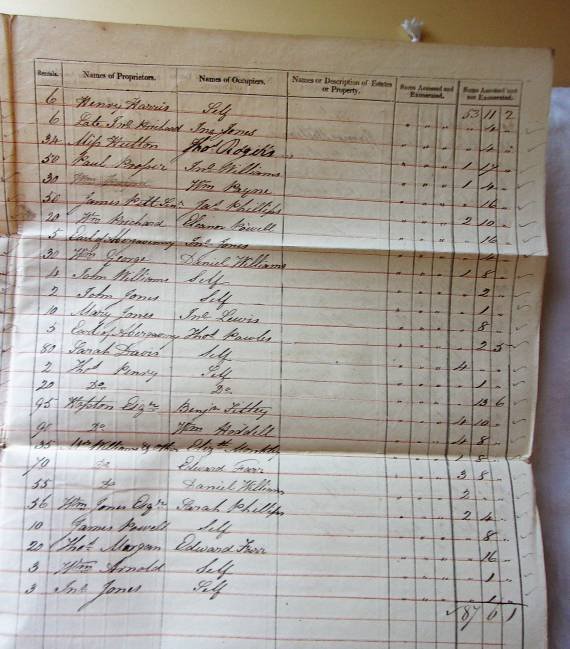 Rentals. Names of Proprietors. Names of Occupiers. Names or Description of Estates or Property. Sums Assessed and Exonerated. Sums Assessed and not Exonerated.
6 Henry Harris Self 53 11 2
6 Late Jno Prichard Jno Jones 4
34 Miss Hutton Thos Rogers 4
50 Paul Proper Jno Williams 1 17
30 Wm Payne 1 4
50 James Pitt Senr Jas Phillips 16
20 Wm Prichard Eleanor Powell 2 10
5 Earl of Abergavenny Jno Jones 16
30 Wm George Daniel Williams 4
4 John Williams Self 1 8
2 John Jones Self 2
10 Mary Jones Jno Lewis 1
5 Earl of Abergavenny Thos Powles 8
80 Sarah Davis Self 2 5
2 Thos Penry Self 4
20 Do Do 1
95 Esqre Benjn 13 6
95 Do Wm Hoddell 4 10
35 Wm Williams & other Elizth 4 8
70 Do Edward Farr 1 8
55 Do Daniel Williams 3 8
56 Wm Jones Esqre Sarah Phillips 2
10 James Powell Self 2 4
20 Thos Morgan Edward Farr 8
3 Wm Arnold Self 16
3 Jno Jones Self 1
1
87 6 1